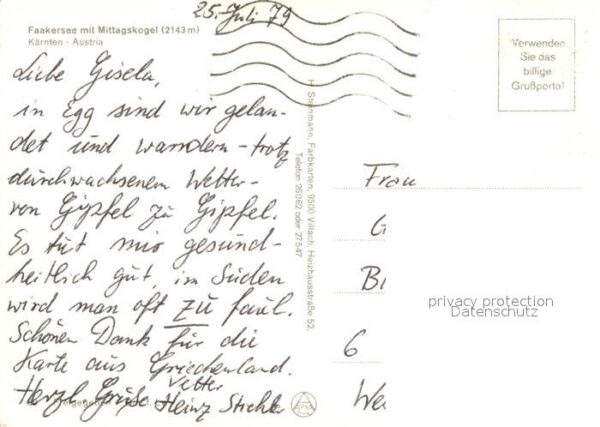 25. Juli 79
Faakersee mit Mittagskogel (2143 m)
Kärnten - Austria
Verwenden
Sie das
billige
Grußporto!
Liebe Gisela,
in Egg sind wir gelan-
det und wandern - trotz
durchwachsenem Wetter -
von Gipfel zu Gipfel.
Es tut mir gesund-
heitlich gut, im Süden
wird man oft zu faul.
Schönen Dank für die
Karte aus Griechenland.
Herzl Grüße Vetter
Heinz
H. Steinmann, Farbkarten, 9500 Villach, Heizhausstraße 52,
Telefon 26062 oder 27547
Frau
G
Bi
6
We
privacy protection
Datenschutz